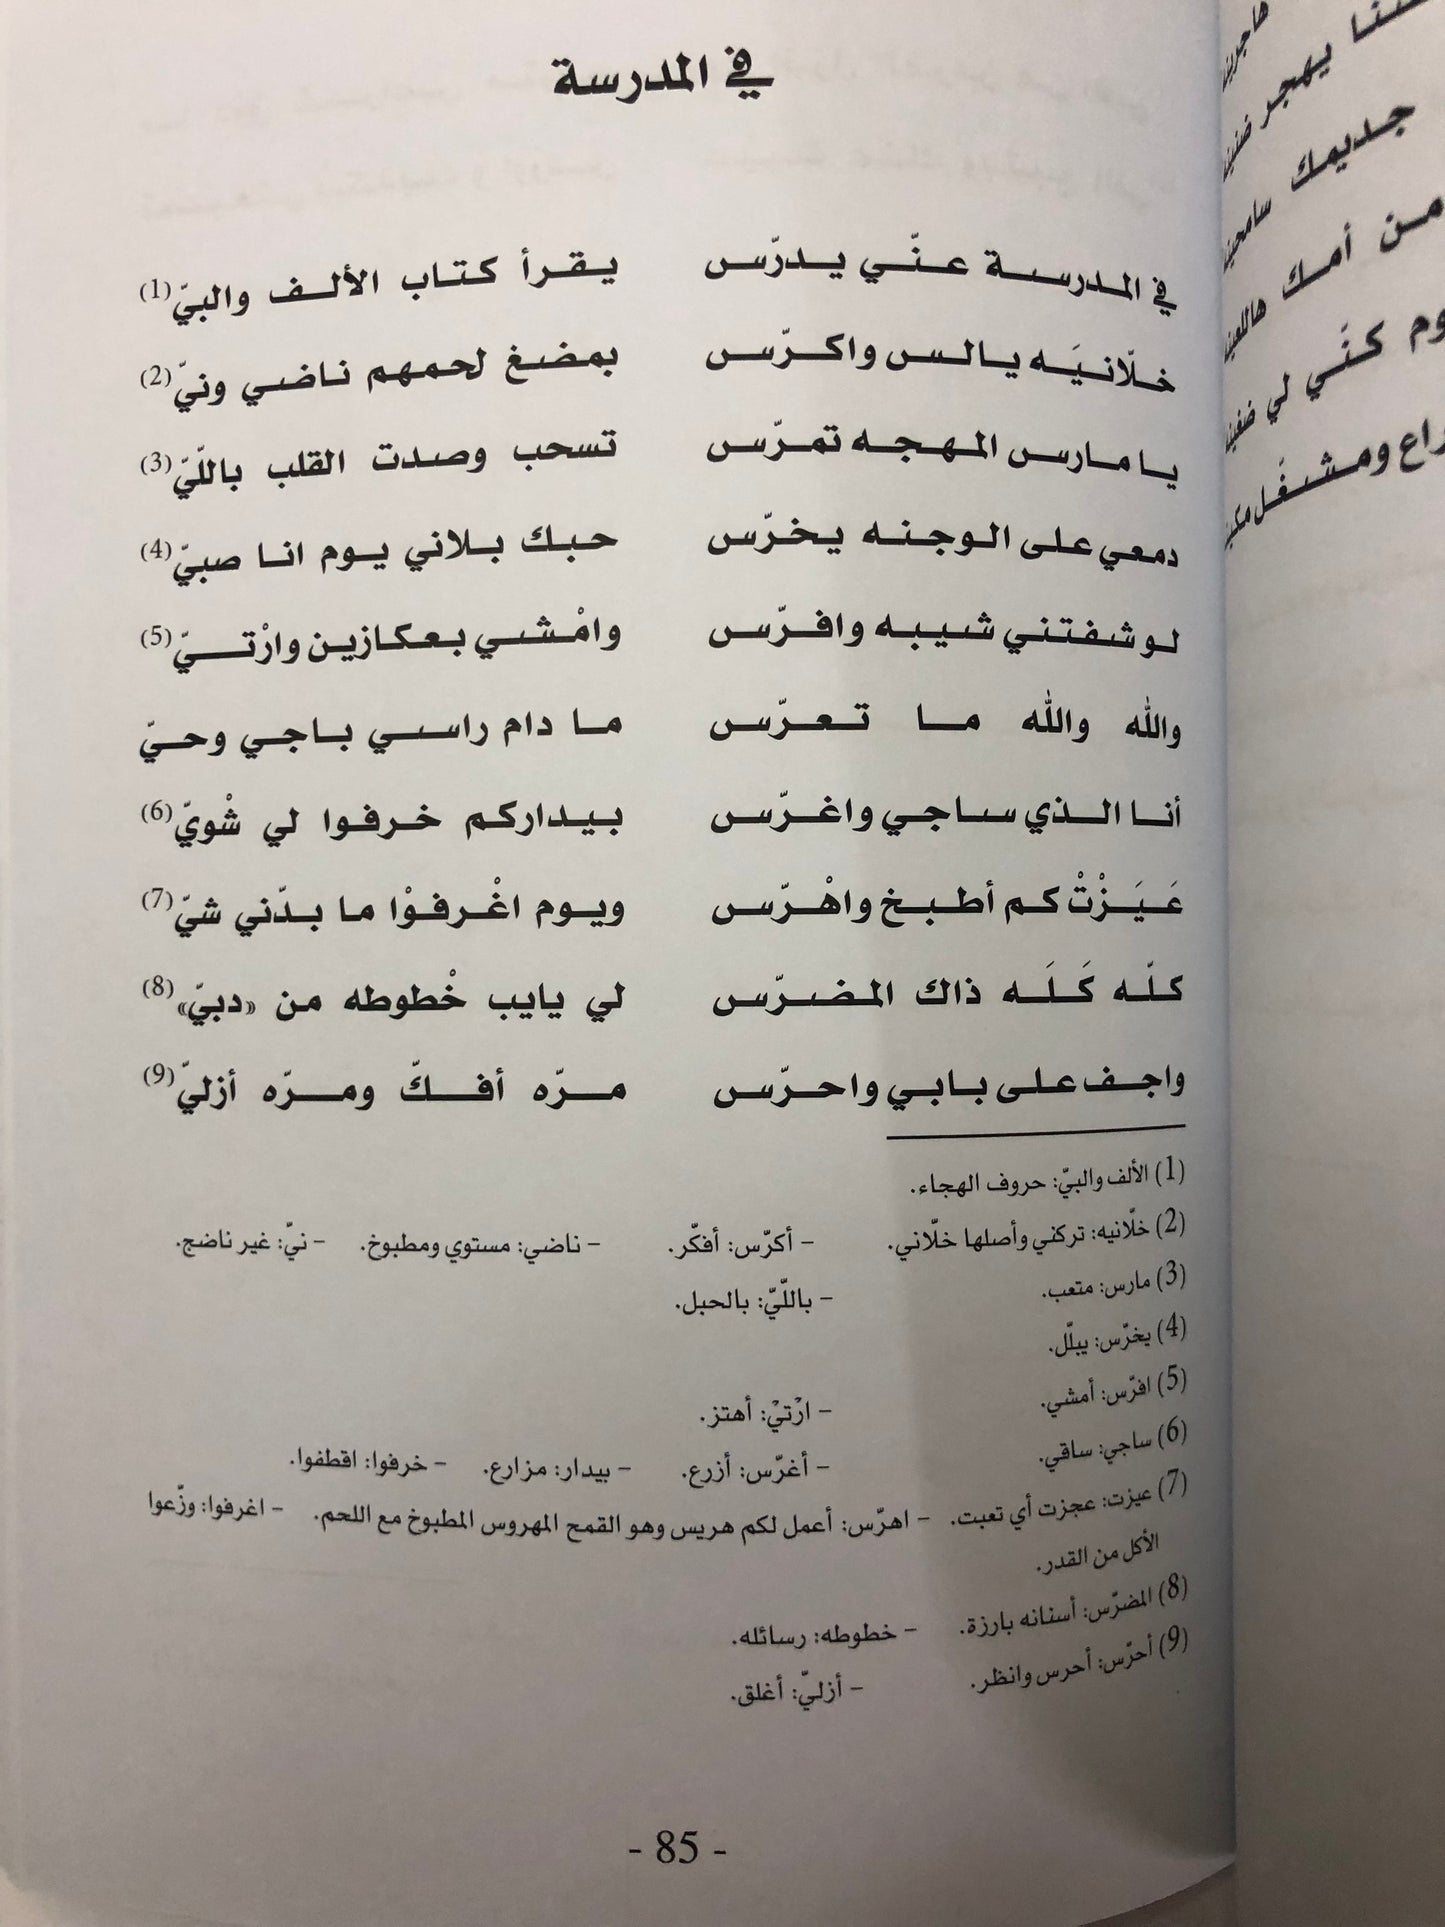 في المدرسة
في المدرسة عنّي يدرّس يقرأ كتاب الألف والبيّ(1)
خلّانيَه يالس واكرّس بمضغ لحمهم ناضي ونيّ(2)
يا مارس المهجه تمرّس تسحب وصدت القلب باللّيّ(3)
دمعي على الوجنه يخرّس حبك بلاني يوم انا صبيّ(4)
لو شفتني شيبه وافرّس وامْشي بعكازين وارْتيّ(5)
والله والله ما تعرّس ما دام راسي باجي وحيّ
أنا الذي ساجي واغرّس بيداركم خرفوا لي شْويّ(6)
عَيَزْتْ كم أطبخ واهْرّس ويوم اغْرفوْا ما بدّني شيّ(7)
كلّه كَلَه ذاك المضرّس لي يايب خْطوطه من «دبيّ»(8)
واجف على بابي واحرّس مرّه أفكّ ومرّه أزليّ(9)
(1) الألف والبيّ: حروف الهجاء.
(2) خلّانيه: تركني وأصلها خلّاني. – أكرّس: أفكّر. – ناضي: مستوي ومطبوخ. – نيّ: غير ناضج.
(3) مارس: متعب. – باللّيّ: بالحبل.
(4) يخرّس: يبلّل.
(5) افرّس: أمشي. – ارْتيْ: أهتز.
(6) ساجي: ساقي. – أغرّس: أزرع. – بيدار: مزارع. – خرفوا: اقطفوا.
(7) عيزت: عجزت أي تعبت. – اهرّس: أعمل لكم هريس وهو القمح المهروس المطبوخ مع اللحم. – اغرفوا: وزّعوا
الأكل من القدر.
(8) المضرّس: أسنانه بارزة. – خطوطه: رسائله.
(9) أحرّس: أحرس وانظر. – أزليّ: أغلق.
- 85 -
يهجر
جديمك سامحين
من أمك
كنّي لي
ومشغل